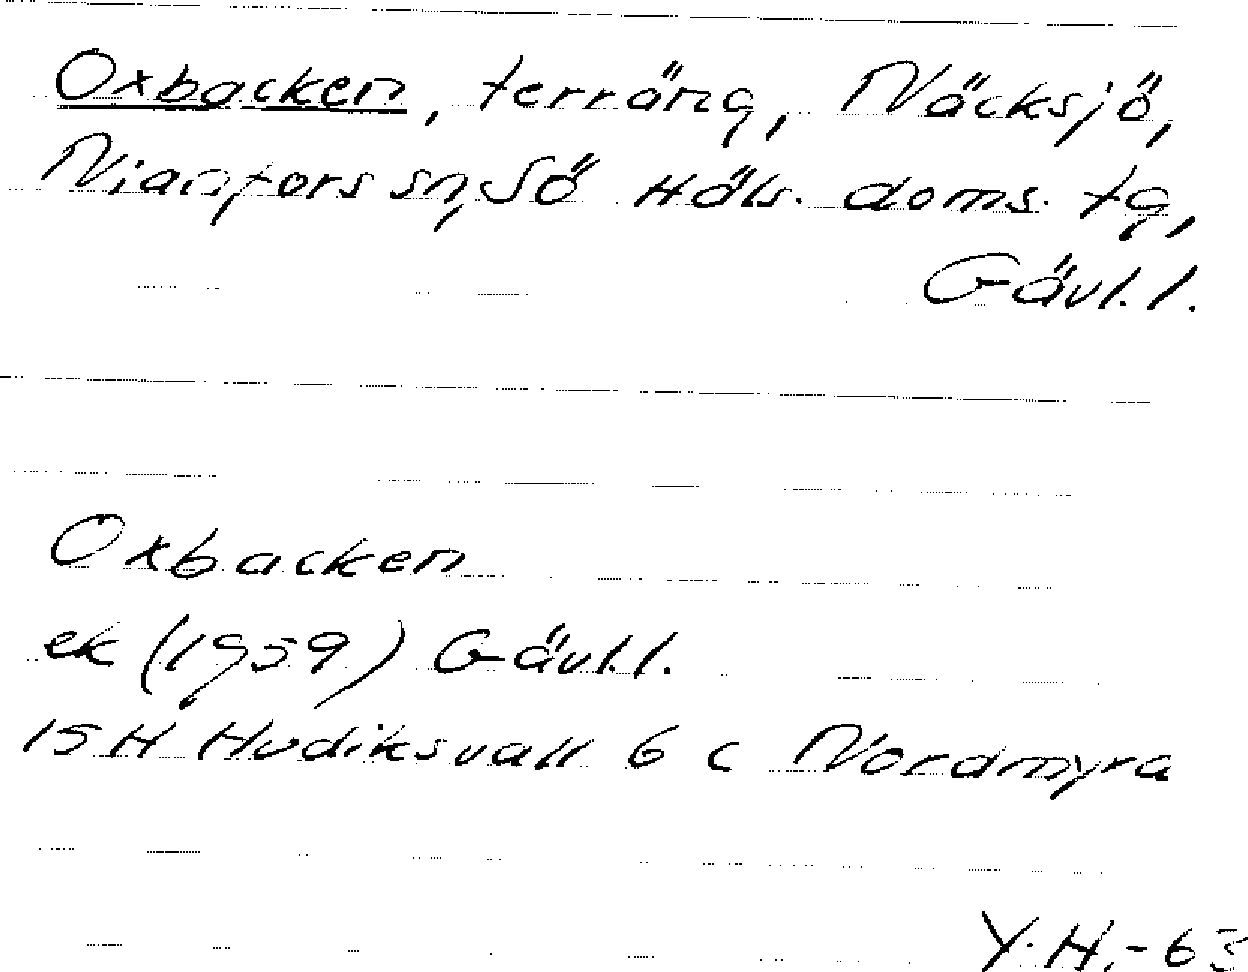 Oxbacken, terräng, Näcksjö,
Nianfors sn, Sö Häls. doms. tg,
Gävl. l.
Oxbacken
ek (1959) Gävl. l.
15 H Hudiksvall 6 c Nordmyra
Y. H. - 63